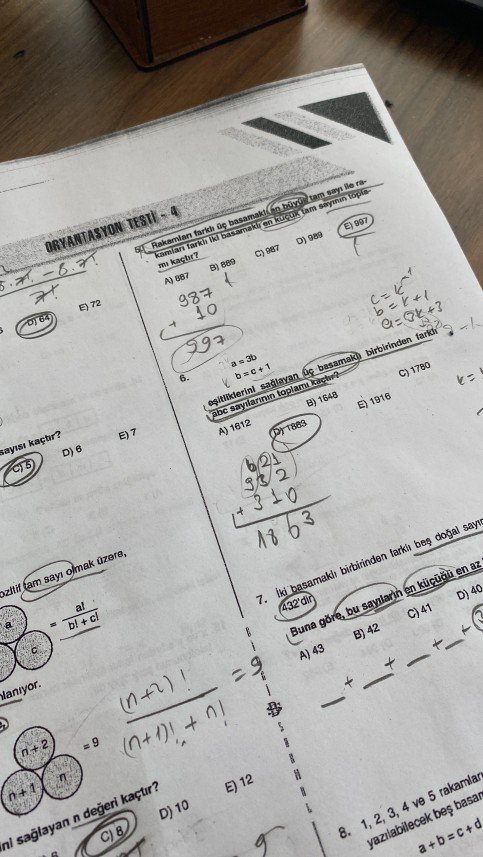 ORYANTASYON TESTİ - 4
D) 64
E) 72
sayısı kaçtır?
C) 5
D) 6
E) 7
tam sayı olmak üzere,
a
c
= a!
b! + c!
n + 2
n + 1
n
= 9
(n+2)!
(n+1)! + n!
= 9
ini sağlayan n değeri kaçtır?
C) 8
D) 10
E) 12
Rakamları farklı üç basamaklı en büyük tam sayı ile ra-
kamları farklı iki basamaklı en küçük tam sayının topla-
mı kaçtır?
A) 887
B) 889
C) 987
D) 989
E) 997
987
+ 10
997
c = k
b = k + 1
a = 3k + 3
6.
a = 3b
b = c + 1
eşitliklerini sağlayan üç basamaklı birbirinden farklı
abc sayılarının toplamı kaçtır?
A) 1612
B) 1648
C) 1780
D) 1863
E) 1916
621
932
+ 310
1863
7. İki basamaklı birbirinden farklı beş doğal sayın
432'dir.
Buna göre, bu sayıların en küçüğü en az
A) 43
B) 42
C) 41
D) 40
8. 1, 2, 3, 4 ve 5 rakamları
yazılabilecek beş basam
a + b = c + d